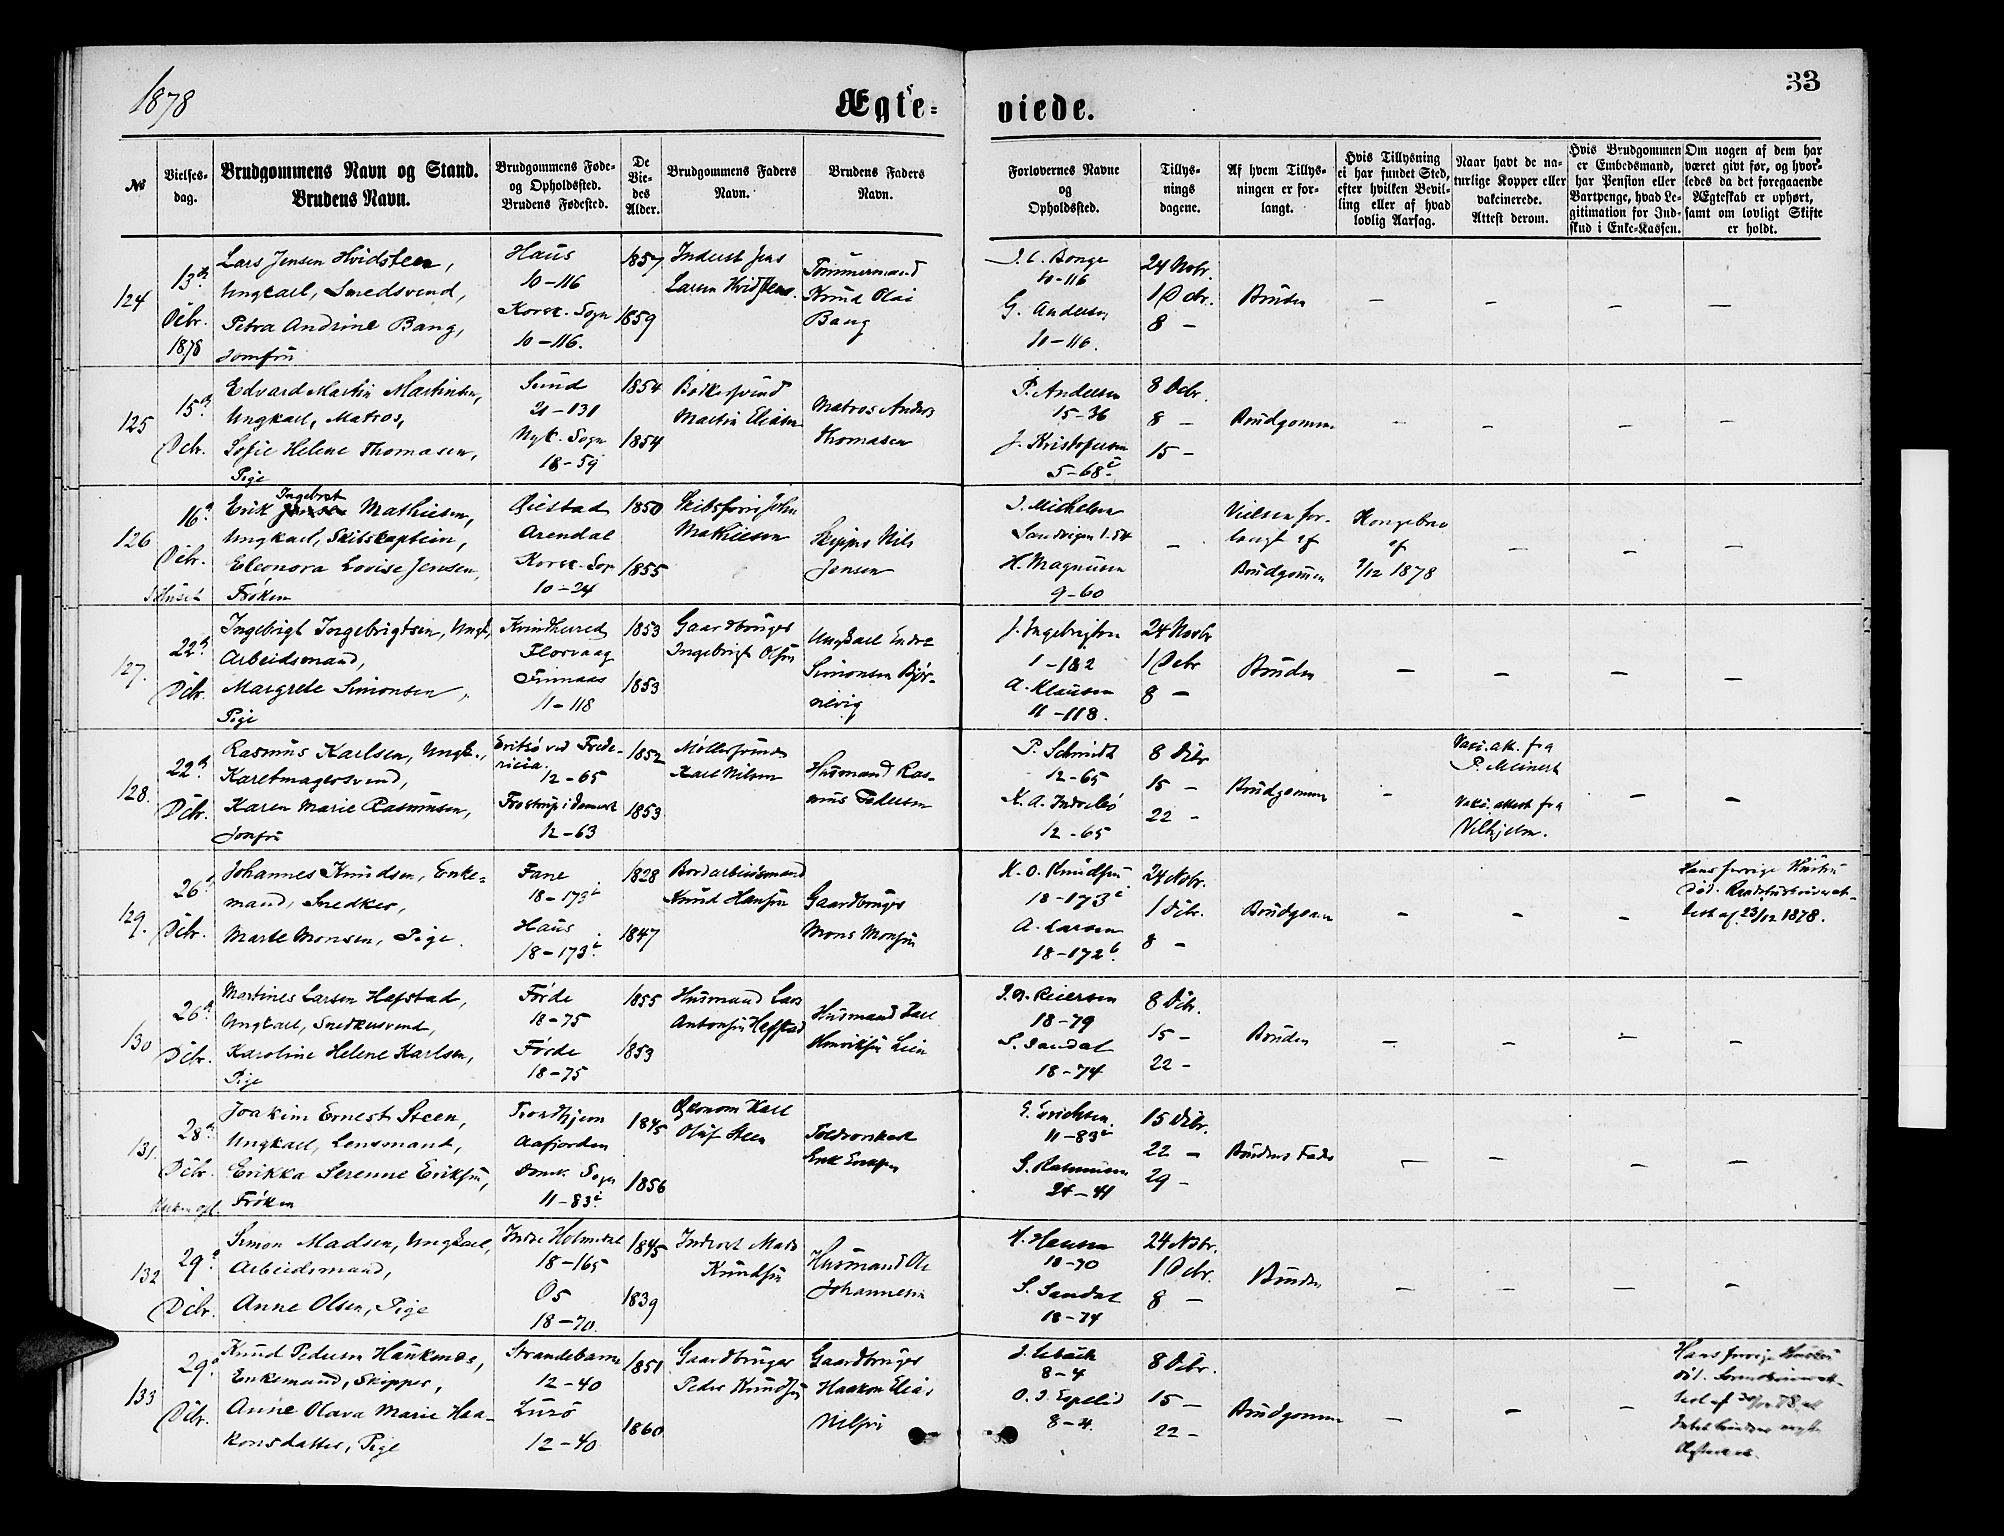 1878
Ægte-
viede.
33
№
Vielses-
dag.
Brudgommens Navn og Stand.
Brudens Navn.
Brudgommens Føde-
og Opholdssted.
Brudens Fødested.
De
Vie-
des
Alder.
Brudgommens Faders
Navn.
Brudens Faders
Navn.
Forlovernes Navne
og
Opholdssted.
Tillys-
nings
dagene.
Af hvem Tillys-
ningen er for-
langt.
Hvis Tillysning
ei har fundet Sted,
efter hvilken Bevil-
ling eller af hvad
lovlig Aarsag.
Naar havt de na-
turlige Kopper eller
vakcinerede.
Attest derom.
Hvis Brudgommen
er Embedsmand,
har Pension eller
Vartpenge, hvad Le-
gitimation for Ind-
skud i Enke-Kassen.
Om nogen af dem har
været givt før, og hvor-
ledes da det foregaaende
Ægteskab er ophørt,
samt om lovligt Skifte
er holdt.
124
13de
Dcbr.
1878
Lars Jensen Hvidsteen,
Ungkarl, Smedsvend,
Petra Andrine Bang,
Jomfru
Haus
10-116
Korsk. Sogn
10-116.
1857
1859
Inderst Jens
Larsen Hvidsteen.
Tømmermand
Knud Olai
Bang
10-116
G. Andersen
10-116.
24 Novbr.
1 Dcbr.
8 -
Bruden
125
15de
Dcbr.
Edvard Martin Martinsen,
Ungkarl, Matros,
Sofie Helene Thomasen,
Pige
Sund
21-131
Nyk. Sogn
18-59
1854
1854
Bødkersvend
Martin Eliasen
Matros Anders
Thomasen
P. Andersen
15-36
J. Kristofersen
5-68
8 Dcbr.
8 -
15 -
Brudgommen
126
16de
Dcbr.
i Huset
Erik Ingebret Mathiesen,
Ungkarl, Skibskaptein,
Eleonora Lovise Jensen,
Frøken
Øiestad
Arendal
Korsk. Sogn
10-24
1850
1855
John
Mathiesen
Skipper Nils
Jensen
J. Michelsen
Sandvigen 1-54
H. Magnusen
9-60
Vielsen for-
langt af
Brudgommen
af
1878
127.
22de
Dcbr.
Ingebrigt Ingebrigtsen, Ungk.,
Arbeidsmand,
Margrete Simonsen,
Pige
Kvindherred
Florvaag
11-118
1853
1853
Gaardbruger
Ingebrigt Olsen
Ungkarl Endre
Simonsen Bjør-
nevig
J. Ingebrigtsen
1-182
A. Klausen
11-118.
24 Novbr
1 Dcbr
8 -
Bruden
128.
22de
Dcbr.
Rasmus Karlsen, Ungk.,
Karetmagersvend,
Karen Marie Rasmusen,
Jomfru
Eritsø ved Frede-
ricia.
12-65
12-63
1852
1853
Møllersvend
Karl Nilsen
Husmand Ras-
mus Pedersen
P. Schmidt
12-65
12-65
8 Dcbr
15 -
22 -
Brudgommen
Vaks. att. fra
P. Meinert
Vaks. attest fra
129.
26de
Dcbr.
Johannes Knudsen, Enke-
mand, Snedker,
Marte Monsen, Pige
Fane
18-173
Haus
18-173
1828
1847
Bordarbeidsmand
Knud Hansen
Gaardbruger
Mons Monsen
K. O. Knudsen
18-173
A. Larsen
18-172
24 Novbr.
1 Dcbr.
8 -
Brudgommen
Hans forrige Hustru
død.
af 23/12 1878.
130
26de
Dcbr.
Martines Larsen Hafstad,
Ungkarl, Snedkersvend,
Karoline Helene Karlsen,
Pige
Førde
18-75
Førde
18-75
1855
1853
Husmand Lars
Antonsen Hafstad
Husmand Karl
Henriksen Lein
Reiersen
18-79
S. Sandal
18-74
8 Dcbr.
15 -
22 -
Bruden
131.
28de
Dcbr.
Joakim Ernest Steen,
Ungkarl, Lensmand,
Erikka Serenne Eriksen,
Frøken
Trondhjem
Aafjorden
Domk. Sogn
11-83
1845
1856
Økonom Karl
Oluf Steen
E. Erichsen
11-83
G. Rasmusen
24-41
15 Dcbr.
22 -
29 -
Brudens Fader
132
29de
Dcbr.
Simon Madsen, Ungkarl,
Arbeidsmand,
Anne Olsen, Pige
Indre Holmedal
18-165
Os
18-70.
1845
1839
Inderst Mads
Knudsen
Husmand Ole
Johannesen
H. Hansen
18-70
S. Sandal
18-74
24 Novbr.
1 Dcbr.
8 -
Bruden
133
29de
Dcbr.
Knud Pedersen Haukenæs,
Enkemand, Skipper,
Anne Olava Marie Haa-
konsdatter, Pige
Strandebarm
12-40
12-40
1851
1860
Gaardbruger
Peder Knudsen
Gaardbruger
Haakon Elias
Nilsen
8-4
O. J. Espelid
8-4
8 Dcbr.
15 -
22 -
Brudgommen
Hans forrige Hustru
død.